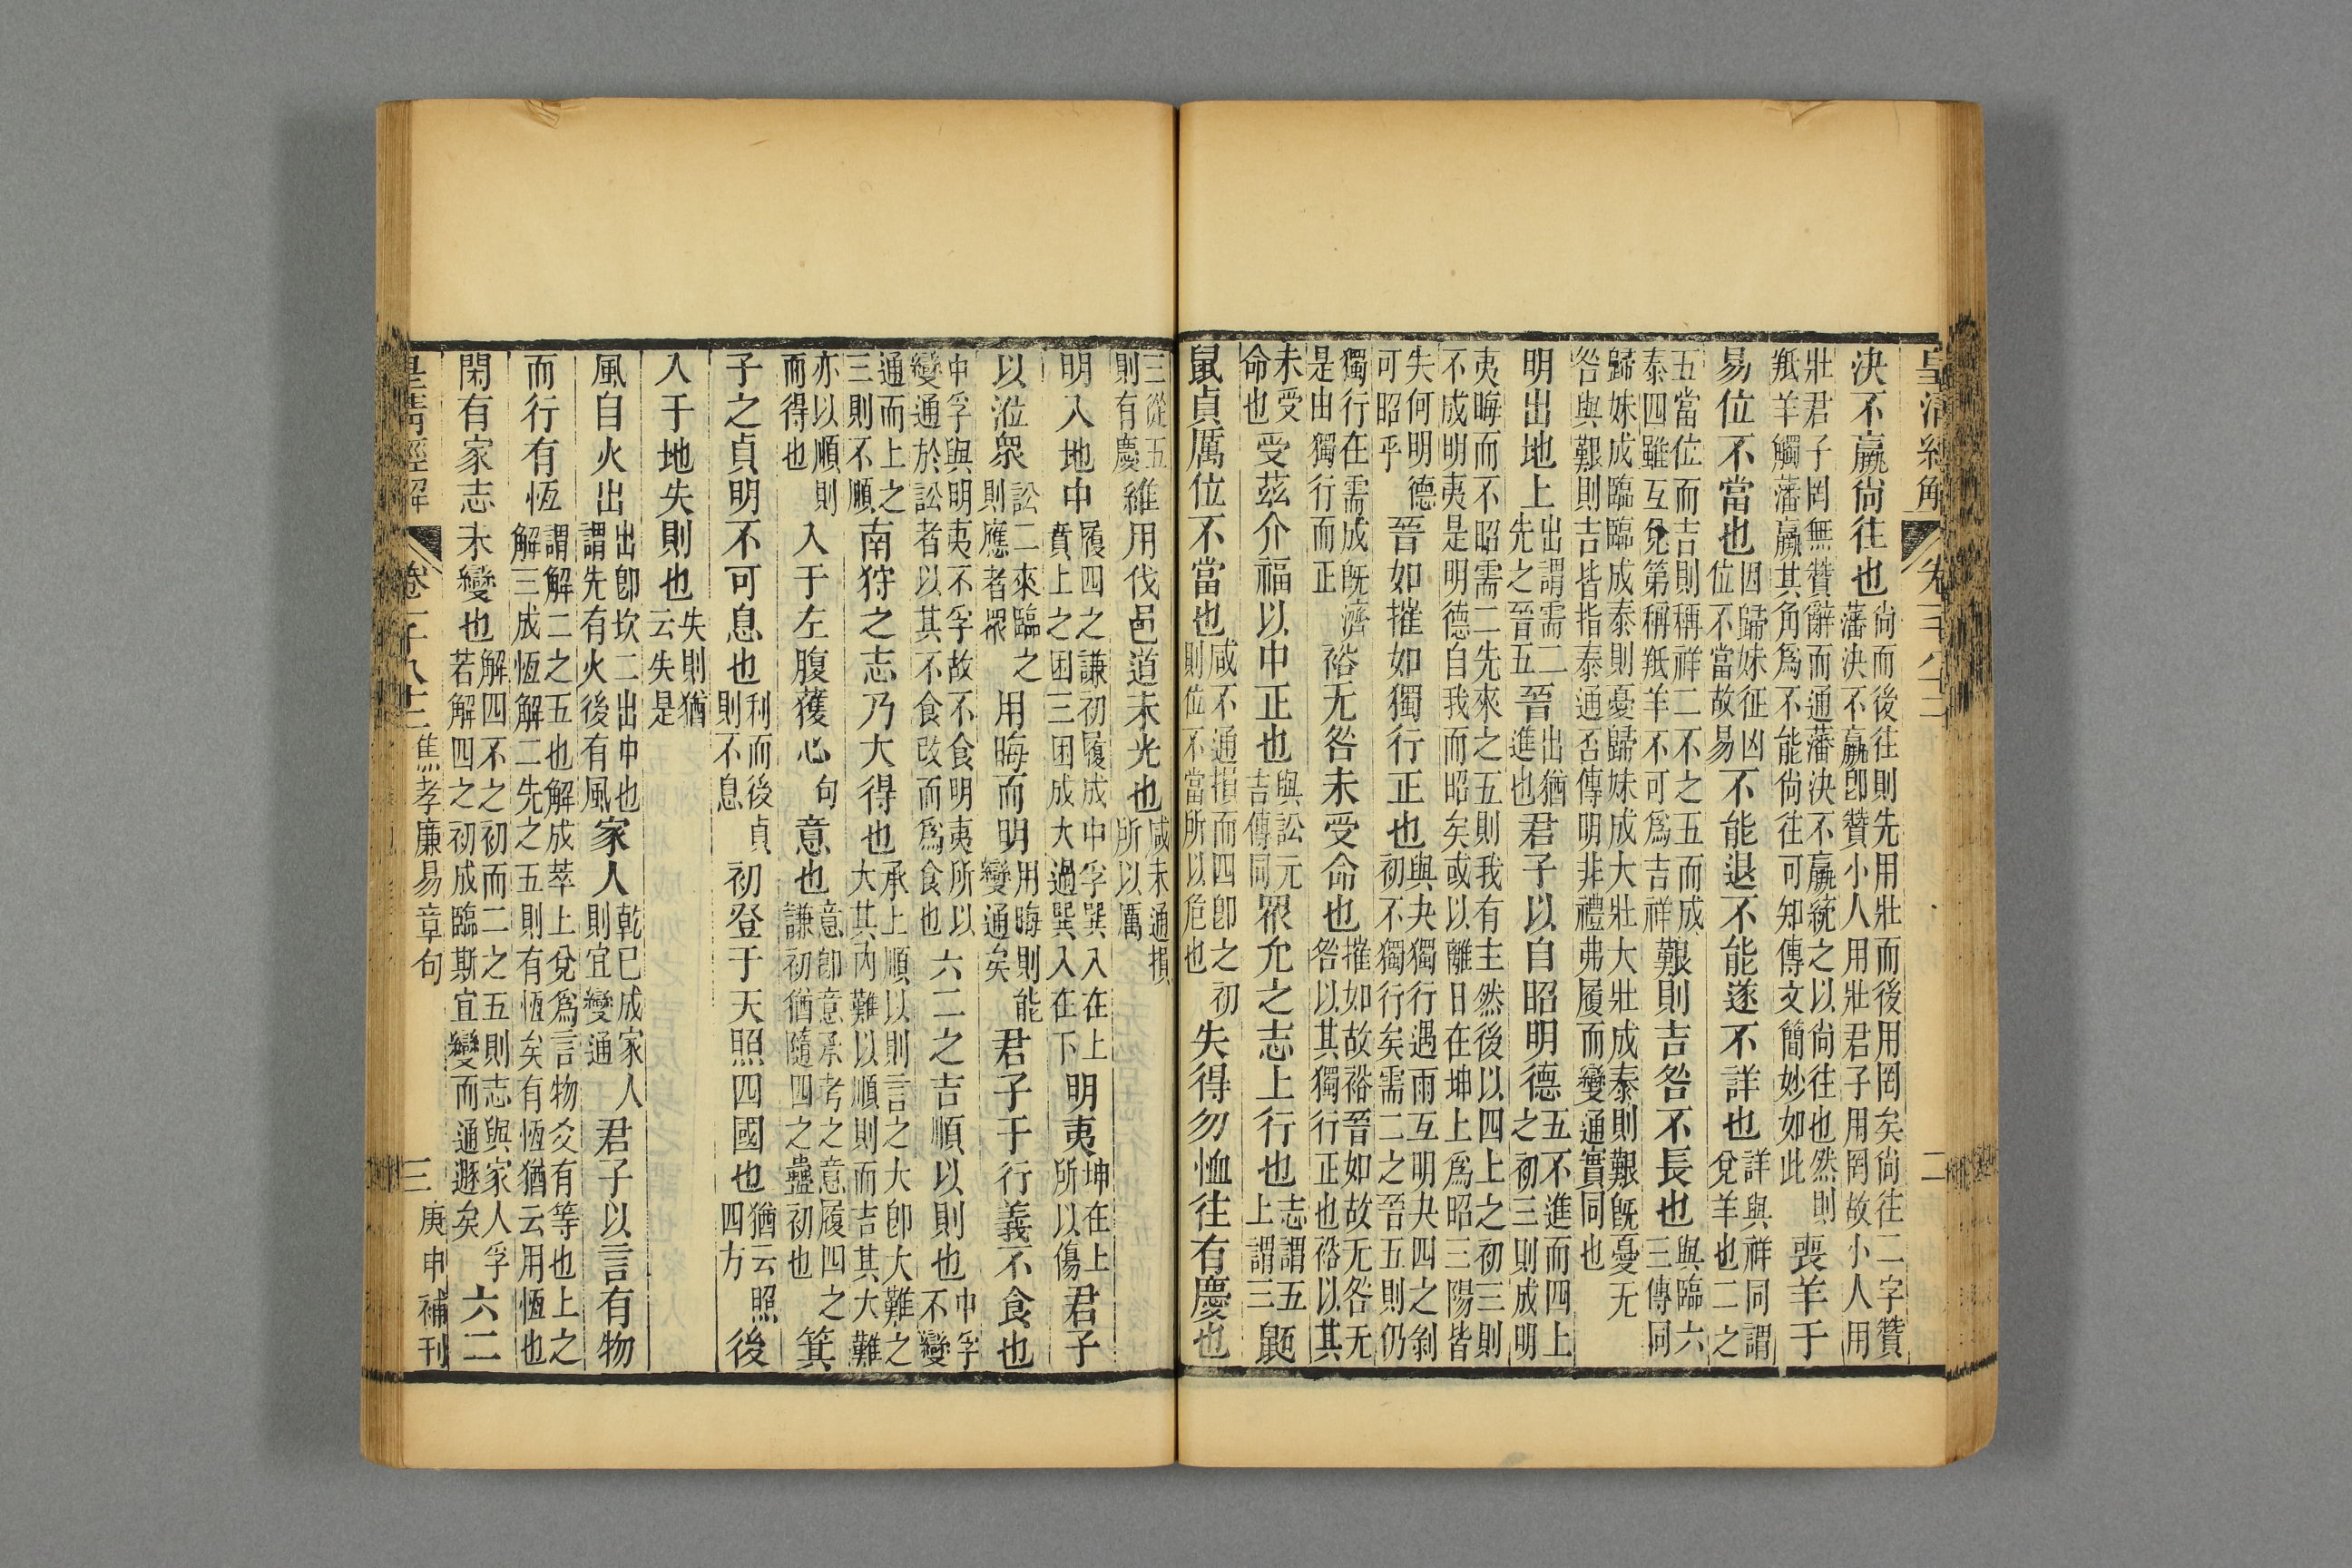 皇清經解 卷千八十三 二
決不羸尚往也
尚而後往則先用壯而後用罔矣尚往二字贊
藩決不羸卽贊小人用壯君子用罔故小人用
壯君子罔無贊辭而通藩決不羸統之以尚往也然則
羝羊觸藩羸其角爲不能尚往可知傳文簡妙如此
喪羊于
易位不當也
因歸妹征凶
位不當故易
不能退不能遂不詳也
詳與祥同謂
兌羊也二之
五當位而吉則稱祥二不之五而成
泰四雖互兌第稱羝羊不可爲吉祥
艱則吉咎不長也
與臨六
三傳同
歸妹成臨臨成泰則憂歸妹成大壯大壯成泰則艱旣憂无
咎與艱則吉皆指泰通否傳明非禮弗履而變通實同也
明出地上
出謂需二
先之晉五
晉
出猶
進也
君子以自昭明德
五不進而四上
之初三則成明
夷晦而不昭需二先來之五則我有主然後以四上之初三則
不成明夷是明德自我而昭矣或以離日在坤上爲昭三陽皆
失何明德
可昭乎
晉如摧如獨行正也
與夬獨行遇雨互明夬四之剝
初不獨行矣需二之晉五則仍
獨行在需成旣濟
是由獨行而正
裕无咎未受命也
摧如故裕晉如故无咎无
咎以其獨行正也裕以其
未受
命也
受茲介福以中正也
與訟元
吉傳同
眾允之志上行也
志謂五
上謂三
鼫
鼠貞厲位不當也
咸不通損而四卽之初
則位不當所以危也
失得勿恤往有慶也
三從五
則有慶
維用伐邑道未光也
咸未通損
所以厲
明入地中
履四之謙初履成中孚巽入在上
賁上之困三困成大過巽入在下
明夷
坤在上
所以傷
君子
以涖眾
訟二來臨之
則應者眾
用晦而明
用晦則能
變通矣
君子于行義不食也
中孚與明夷不孚故不食明夷所以
變通於訟者以其不食改而爲食也
六二之吉順以則也
中孚
不變
通而上之
三則不順
南狩之志乃大得也
承上順以則言之大卽大難之
大其內難以順則而吉其大難
亦以順則
而得也
入于左腹獲心
句
意也
意卽意承考之意履四之
謙初猶隨四之蠱初也
箕
子之貞明不可息也
利而後貞
則不息
初登于天照四國也
猶云照
四方
後
入于地失則也
失則猶
云失是
風自火出
出卽坎二出中也
謂先有火後有風
家人
乾已成家人
則宜變通
君子以言有物
而行有恆
謂解二之五也解成萃上兌爲言物爻有等也上之
解三成恆解二先之五則有恆矣有恆猶云用恆也
閑有家志未變也
解四不之初而二之五則志與家人孚
若解四之初成臨斯宜變而通遯矣
六二
皇清經解 卷一千八十三 焦孝廉易章句 三 庚申補刊